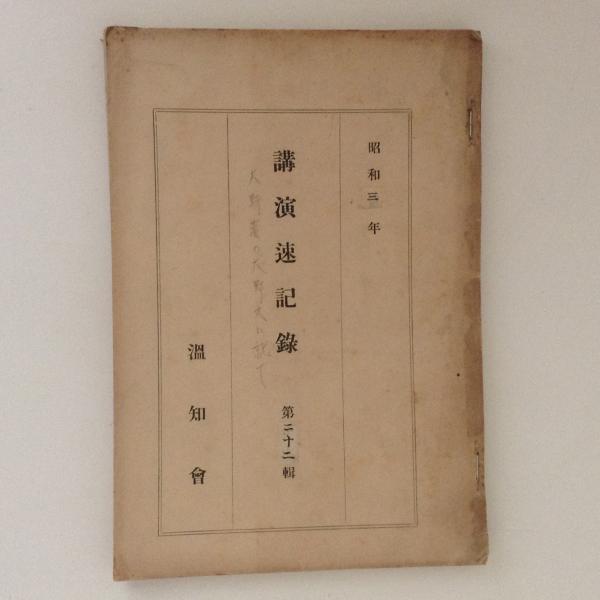 昭和三年
講演速記錄 第二十二輯
大野藩の大野丸に就て
溫知會